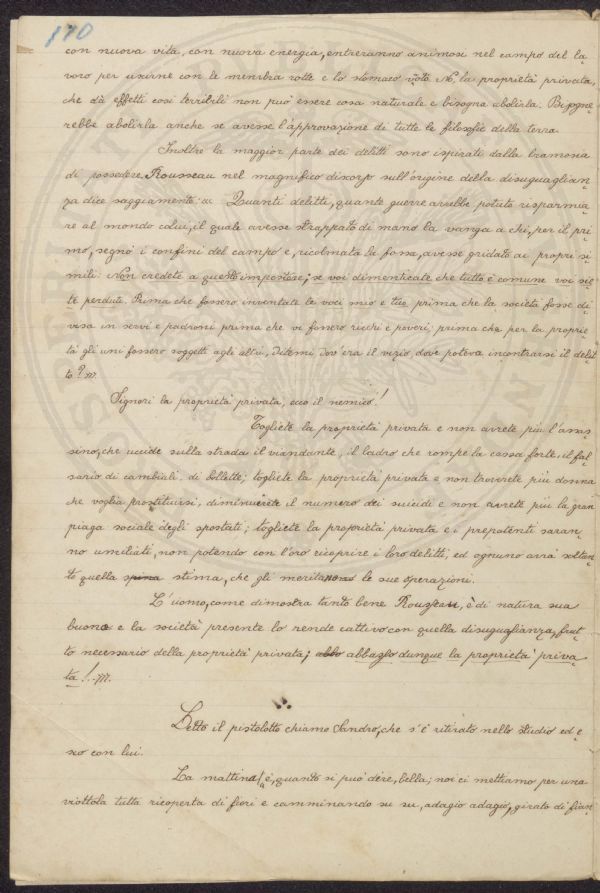 170
con nuova vita, con nuova energia, entreranno animosi nel campo del la
voro per uscirne con le membra rotte e lo stomaco vòto. No, la proprietà privata,
che dà effetti così terribili non può essere cosa naturale e bisogna abolirla. Bisogne
rebbe abolirla anche se avesse l'approvazione di tutte le filosofie della terra.
Inoltre la maggior parte dei delitti sono ispirati dalla bramosia
di possedere. Rousseau nel magnifico discorso sull'origine della disuguaglian
za dice saggiamente: « Quanti delitti, quante guerre avrebbe potuto risparmia
re al mondo colui, il quale avesse strappato di mano la vanga a chi, per il pri
mo, segnò i confini del campo e, ricolmata la fossa, avesse gridato ai propri si
mili: Non credete a questo impostore; se voi dimenticate che tutto è comune voi sie
te perduti. Prima che fossero inventate le voci mio e tuo, prima che la società fosse di
visa in servi e padroni prima che vi fossero ricchi e poveri, prima che per la proprie
tà gli uni fossero soggetti agli altri, ditemi, dov'era il vizio, dove poteva incontrarsi il delit
to? »».
Signori la proprietà privata, ecco il nemico!
Togliete la proprietà privata e non avrete più l'assas
sino, che uccide sulla strada il viandante, il ladro che rompe la cassa forte, il fal
sario di cambiali, di bollette; togliete la proprietà privata e non troverete più donna
che voglia prostituirsi, diminuirete il numero dei suicidi e non avrete più la gran
piaga sociale degli spostati; togliete la proprietà privata e i prepotenti saran
no umiliati, non potendo con l'oro ricoprire i loro delitti; ed ognuno avrà soltan
to quella stima, che gli meritano le sue operazioni.
L'uomo, come dimostra tanto bene Rousseau, è di natura sua
buono e la società presente lo rende cattivo con quella disuguaglianza, frut
to necessario della proprietà privata; abbasso dunque la proprietà priva
ta!. »».
Letto il pistolotto chiamo Sandro, che s'è ritirato nello studio ed e
sco con lui.
La mattina è, quanto si può dire, bella; noi ci mettiamo per una
viottola tutta ricoperta di fiori e camminando su su, adagio adagio, girato di fian